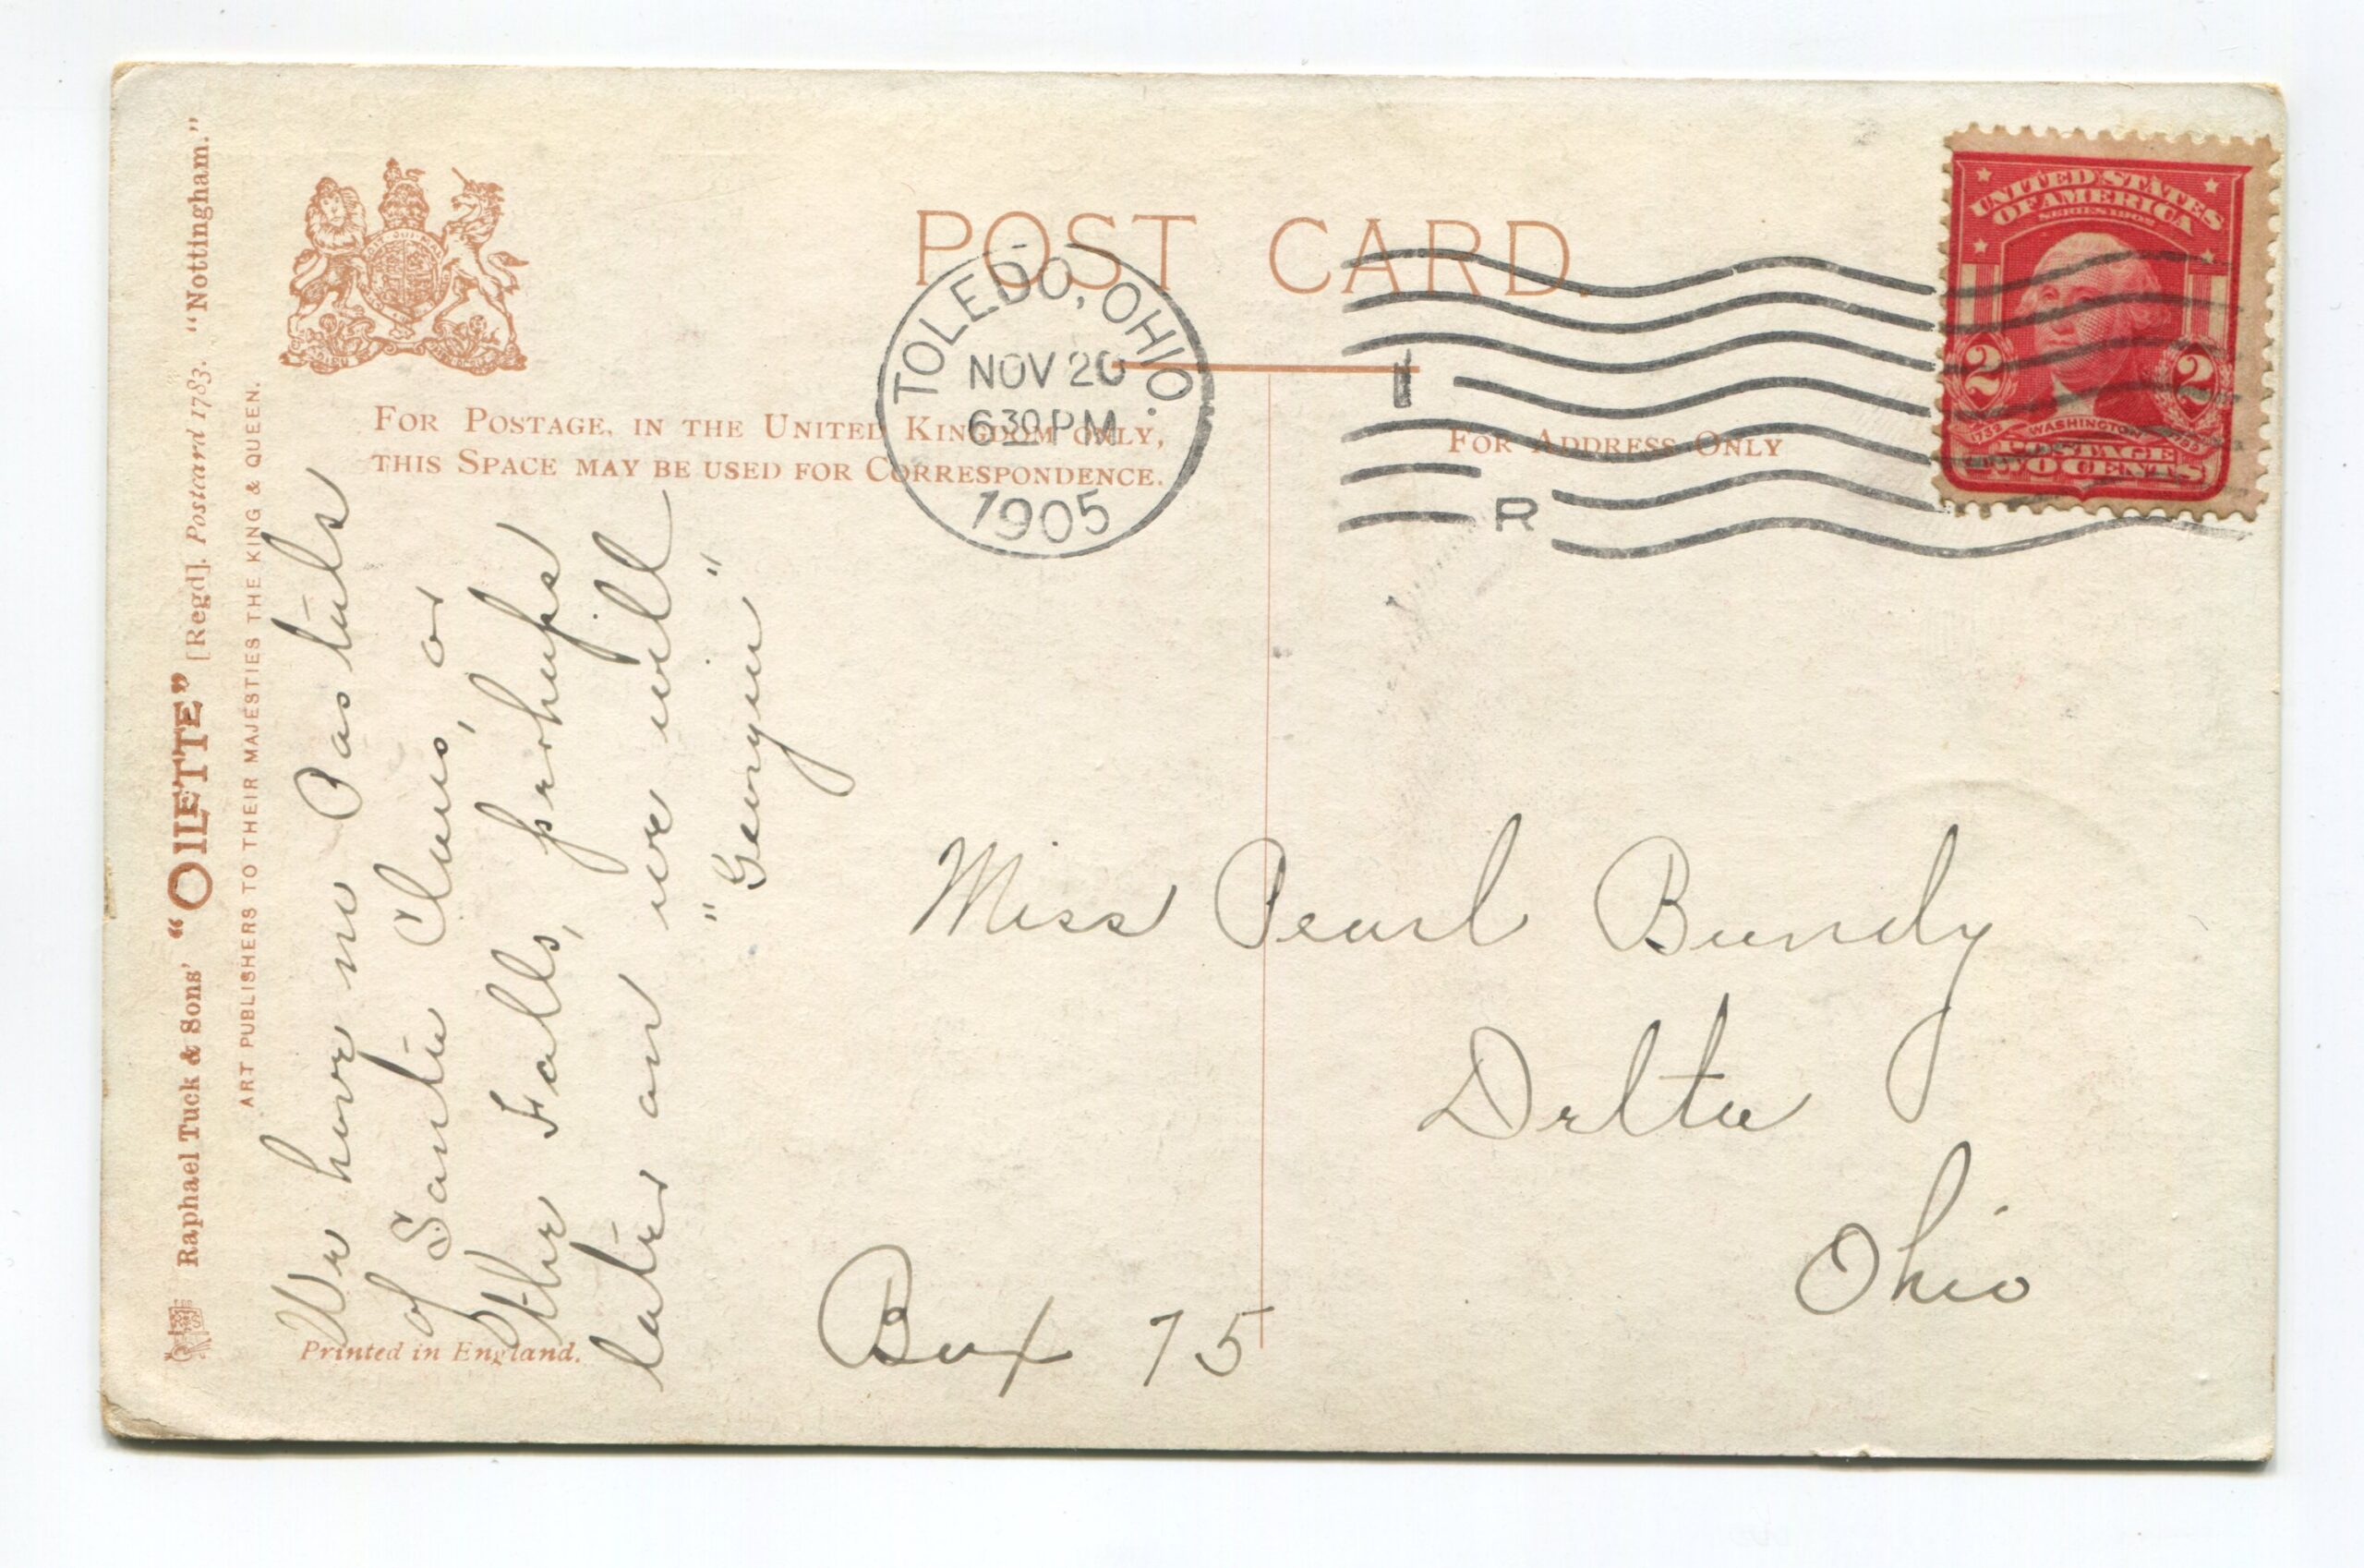 Raphael Tuck & Sons' "OILETTE" [Regd]. Postcard 1783. "Nottingham."
ART PUBLISHERS TO THEIR MAJESTIES THE KING & QUEEN.
POST CARD.
FOR POSTAGE, IN THE UNITED KINGDOM ONLY,
THIS SPACE MAY BE USED FOR CORRESPONDENCE.
FOR ADDRESS ONLY
TOLEDO, OHIO.
NOV 20
630 PM
1905
1
R
UNITED STATES
OF AMERICA
SERIES 1902
2 2
1732 WASHINGTON 1799
POSTAGE
TWO CENTS
We have no Postals
of Santa Claus, or
the Falls, perhaps
later on we will
"Georgia"
Miss Pearl Bundy
Delta
Ohio
Box 75
Printed in England.